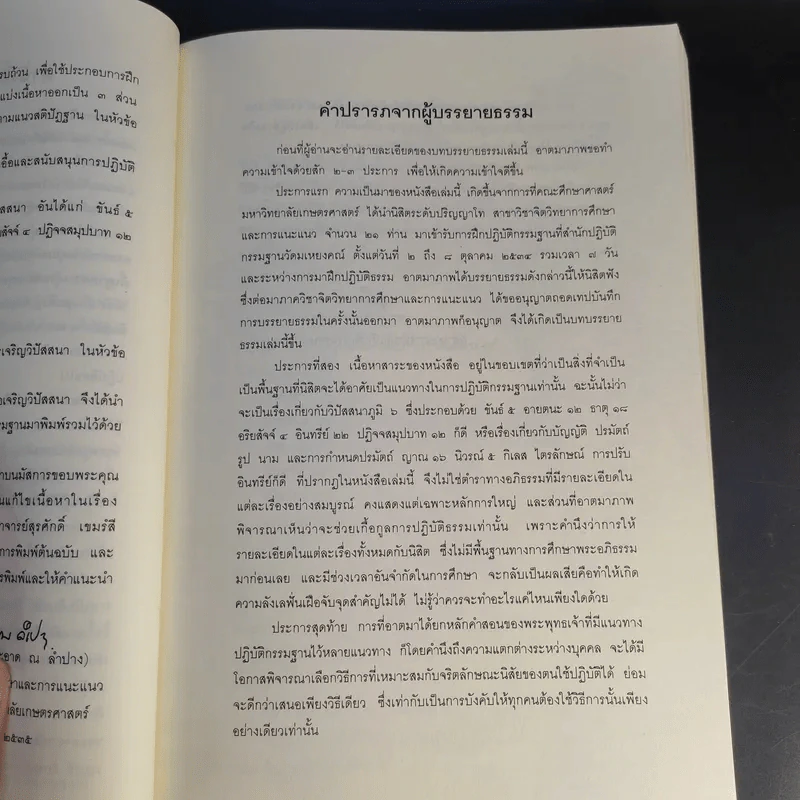 รบถ้วน เพื่อใช้ประกอบการฝึก
แบ่งเนื้อหาออกเป็น ๓ ส่วน
ามแนวสติปัฏฐาน ในหัวข้อ
อื้อและสนับสนุนการปฏิบัติ
ปัสสนา อันได้แก่ ขันธ์ ๕
ัจจ์ ๔ ปฏิจจสมุปบาท ๑๒
เจริญวิปัสสนา ในหัวข้อ
อเจริญวิปัสสนา จึงได้นำ
มฐานมาพิมพ์รวมไว้ด้วย
าบนมัสการขอบพระคุณ
นแก้ไขเนื้อหาในเรื่อง
าจารย์สุรศักดิ์ เขมรํสี
การพิมพ์ต้นฉบับ และ
รพิมพ์และให้คำแนะนำ
ะอาด ณ ลำปาง)
าและการแนะแนว
ลัยเกษตรศาสตร์
๒๕๓๕
คำปรารภจากผู้บรรยายธรรม
ก่อนที่ผู้อ่านจะอ่านรายละเอียดของบทบรรยายธรรมเล่มนี้ อาตมาภาพขอทำ
ความเข้าใจด้วยสัก ๒-๓ ประการ เพื่อให้เกิดความเข้าใจดีขึ้น
ประการแรก ความเป็นมาของหนังสือเล่มนี้ เกิดขึ้นจากการที่คณะศึกษาศาสตร์
มหาวิทยาลัยเกษตรศาสตร์ ได้นำนิสิตระดับปริญญาโท สาขาวิชาจิตวิทยาการศึกษา
และการแนะแนว จำนวน ๒๑ ท่าน มาเข้ารับการฝึกปฏิบัติกรรมฐานที่สำนักปฏิบัติ
กรรมฐานวัดมเหยงคณ์ ตั้งแต่วันที่ ๒ ถึง ๘ ตุลาคม ๒๕๓๔ รวมเวลา ๗ วัน
และระหว่างการมาฝึกปฏิบัติธรรม อาตมาภาพได้บรรยายธรรมดังกล่าวนี้ให้นิสิตฟัง
ซึ่งต่อมาภาควิชาจิตวิทยาการศึกษาและการแนะแนว ได้ขออนุญาตถอดเทปบันทึก
การบรรยายธรรมในครั้งนั้นออกมา อาตมาภาพก็อนุญาต จึงได้เกิดเป็นบทบรรยาย
ธรรมเล่มนี้ขึ้น
ประการที่สอง เนื้อหาสาระของหนังสือ อยู่ในขอบเขตที่ว่าเป็นสิ่งที่จำเป็น
เป็นพื้นฐานที่นิสิตจะได้อาศัยเป็นแนวทางในการปฏิบัติกรรมฐานเท่านั้น ฉะนั้นไม่ว่า
จะเป็นเรื่องเกี่ยวกับวิปัสสนาภูมิ ๖ ซึ่งประกอบด้วย ขันธ์ ๕ อายตนะ ๑๒ ธาตุ ๑๘
อริยสัจจ์ ๔ อินทรีย์ ๒๒ ปฏิจจสมุปบาท ๑๒ ก็ดี หรือเรื่องเกี่ยวกับบัญญัติ ปรมัตถ์
รูป นาม และการกำหนดปรมัตถ์ ญาณ ๑๖ นิวรณ์ ๕ กิเลส ไตรลักษณ์ การปรับ
อินทรีย์ก็ดี ที่ปรากฏในหนังสือเล่มนี้ จึงไม่ใช่ตำราทางอภิธรรมที่มีรายละเอียดใน
แต่ละเรื่องอย่างสมบูรณ์ คงแสดงแต่เฉพาะหลักการใหญ่ และส่วนที่อาตมาภาพ
พิจารณาเห็นว่าจะช่วยเกื้อกูลการปฏิบัติธรรมเท่านั้น เพราะคำนึงว่าการให้
รายละเอียดในแต่ละเรื่องทั้งหมดกับนิสิต ซึ่งไม่มีพื้นฐานทางการศึกษาพระอภิธรรม
มาก่อนเลย และมีช่วงเวลาอันจำกัดในการศึกษา จะกลับเป็นผลเสียคือทำให้เกิด
ความลังเลฟั่นเฝือจับจุดสำคัญไม่ได้ ไม่รู้ว่าควรจะทำอะไรแค่ไหนเพียงใดด้วย
ประการสุดท้าย การที่อาตมาได้ยกหลักคำสอนของพระพุทธเจ้าที่มีแนวทาง
ปฏิบัติกรรมฐานไว้หลายแนวทาง ก็โดยคำนึงถึงความแตกต่างระหว่างบุคคล จะได้มี
โอกาสพิจารณาเลือกวิธีการที่เหมาะสมกับจริตลักษณะนิสัยของตนใช้ปฏิบัติได้ ย่อม
จะดีกว่าเสนอเพียงวิธีเดียว ซึ่งเท่ากับเป็นการบังคับให้ทุกคนต้องใช้วิธีการนั้นเพียง
อย่างเดียวเท่านั้น